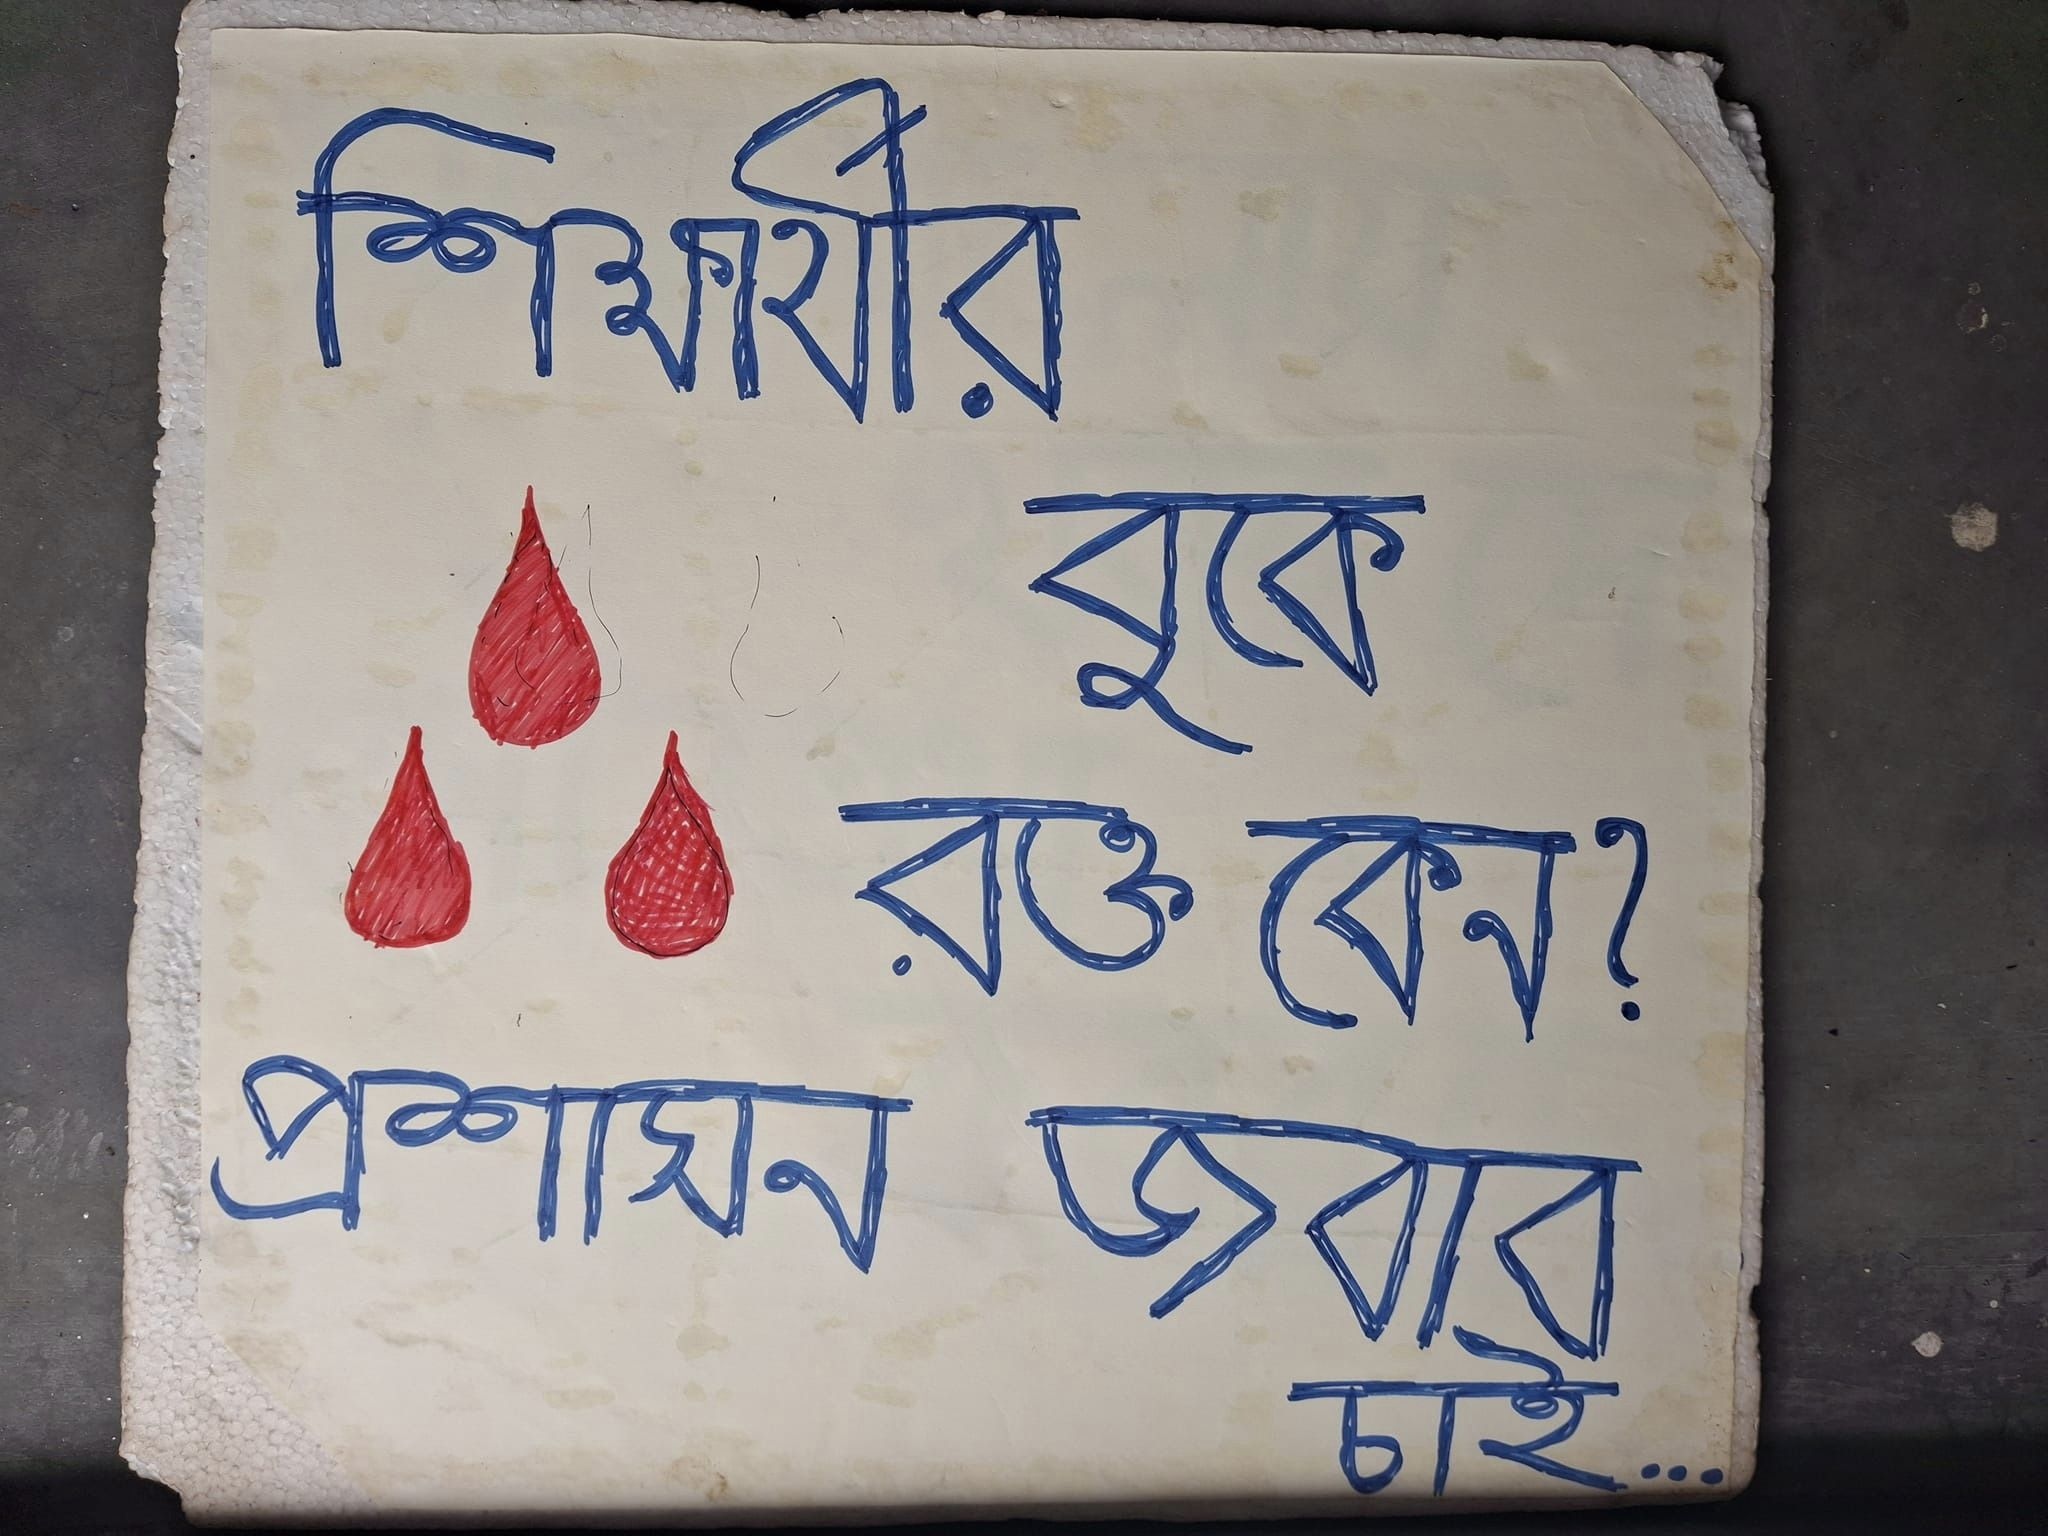 শিক্ষার্থীর
বুকে
রক্ত কেন?
প্রশাসন জবাব
চাই...